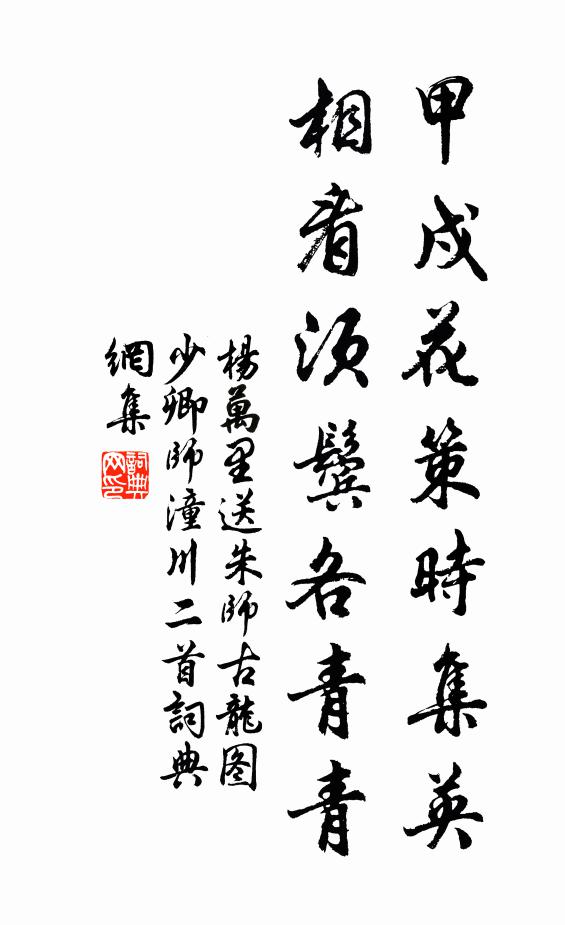 甲戌花策時集英
相看須鬢各青青
楊萬里送朱師古龍圖
少卿師潼川二首詞典
網集
詞典網印